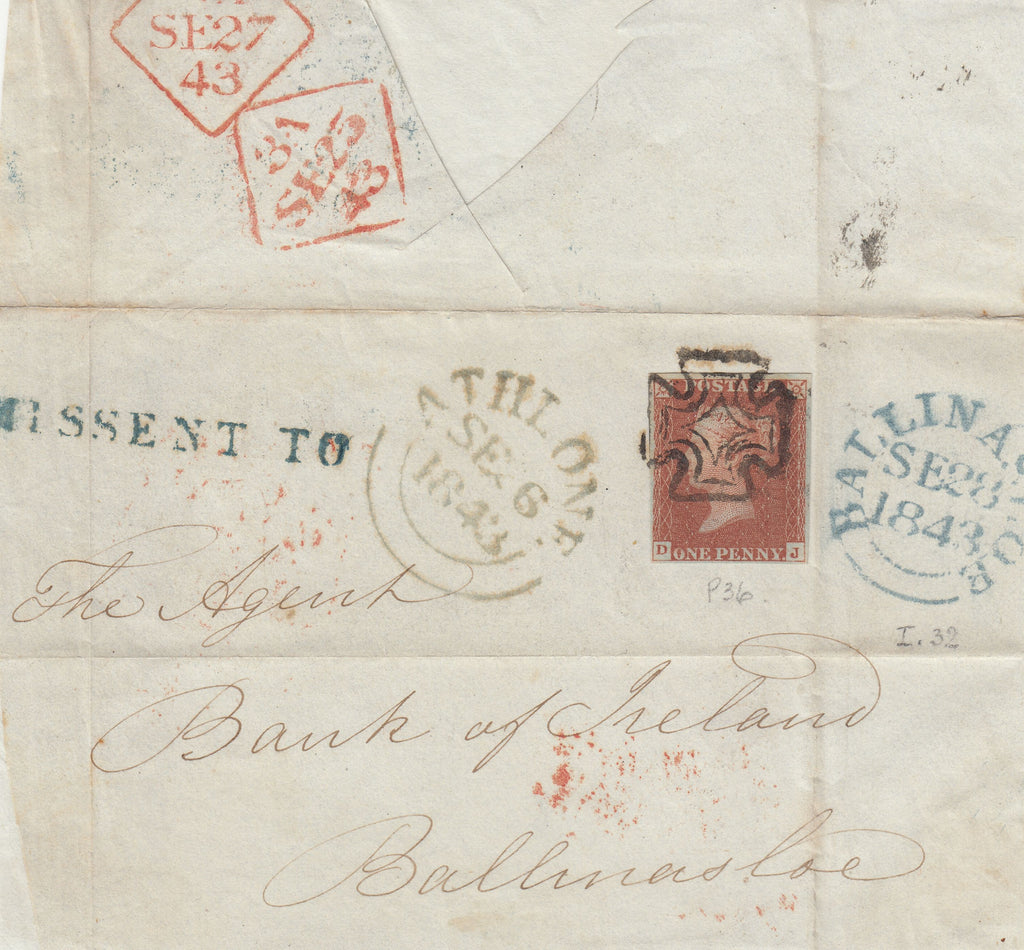 SE27
43
SE25
43
MISSENT TO
ATHLONE
SE 6
1843
POSTAGE
D ONE PENNY. J
P36.
BALLINASLOE
SE28
1843
I. 32
The Agent
Bank of Ireland
Ballinasloe